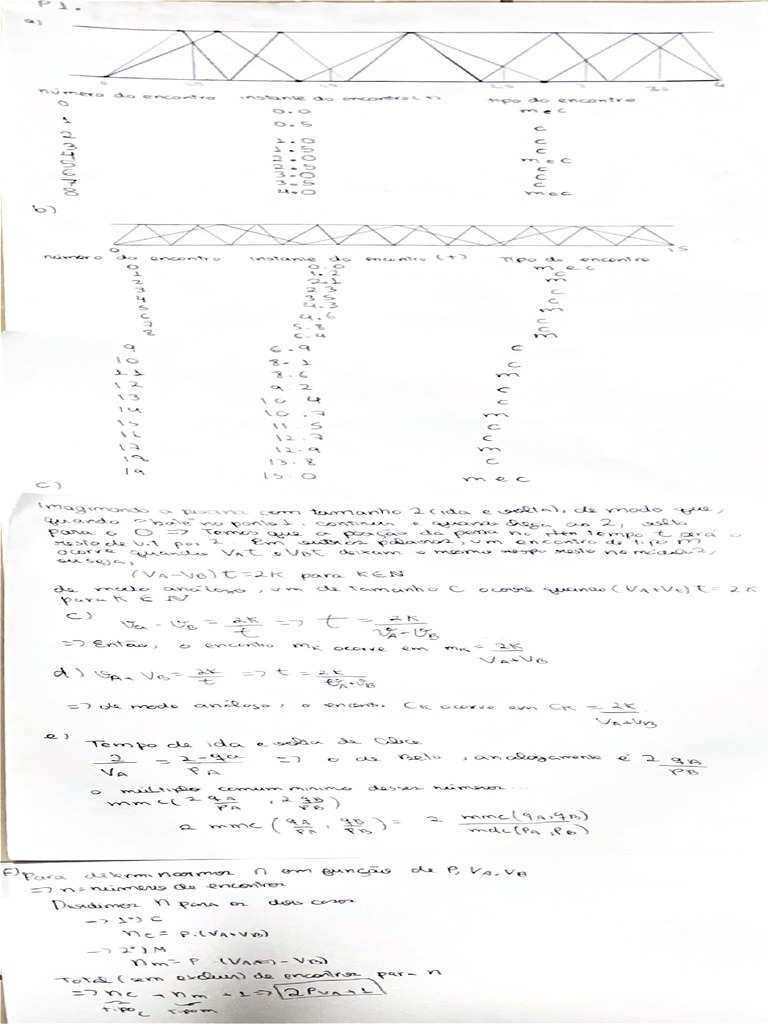 P1.
a)
0 1.0 4
número do encontro instante do encontro (t) tipo do encontro
0 0.0 m e c
1 0.5 c
2 1.0 c
1.5 c
2.0 m e c
2.5 c
3.0 c
3.5 c
8 4.0 m e c
b)
0 15
número do encontro instante do encontro (t) Tipo do encontro
0 0.0 m e c
1 1.2 c
2 2.1 m
3 2.3 c
4 3.5 c
5 4.3 m
6 4.6 c
7 5.8 c
8 6.4 m
9 6.9 c
10 8.1 c
11 8.6 m
12 9.2 c
13 10.4 c
14 10.7 m
15 11.5 c
16 12.7 c
17 12.9 m
18 13.8 c
19 15.0 m e c
c)
Imaginando a piscina com tamanho 2 (ida e volta), de modo que,
quando "bate" no ponto 1, continua e quando chega ao 2, volta
para o 0 => Temos que a posição da pessoa no tempo t será o
resto de v.t por 2. Em outras palavras, um encontro de tipo m
ocorre quando VAt e VBt deixam o mesmo resto no módulo 2,
ou seja,
(VA-VB)t = 2K para K∈N
de modo análogo, um de tamanho C ocorre quando (VA+VB)t = 2K
para K ∈ N
c) VA - VB = 2K/t => t = 2K/VA-VB
=> Então, o encontro mK ocorre em mK = 2K/VA+VB
d) VA+ VB = 2K/t => t = 2K/VA+VB
=> de modo análogo, o encontro CK ocorre em CK = 2K/VA+VB
e)
Tempo de ida e volta de Alice
2/VA = 2-qA/PA => o de Beto, analogamente é 2 qB/PB
o múltiplo comum mínimo desses números...
mmc(2 qA/PA , 2 qB/PB)
2 mmc (qA/PA , qB/PB) = 2 mmc(qA,qB)/mdc(PA,PB)
f) Para determinarmos n em função de P, VA, VB
=> n = números de encontros
Dividimos n para os dois casos
-> 1º) C
nc = P.(VA+VB)
-> 2º) M
nm = P.(VA - VB)
Total (sem excluir) de encontros para n
=> nc + nm + 1 => 2PVA+1
tipo c tipo m